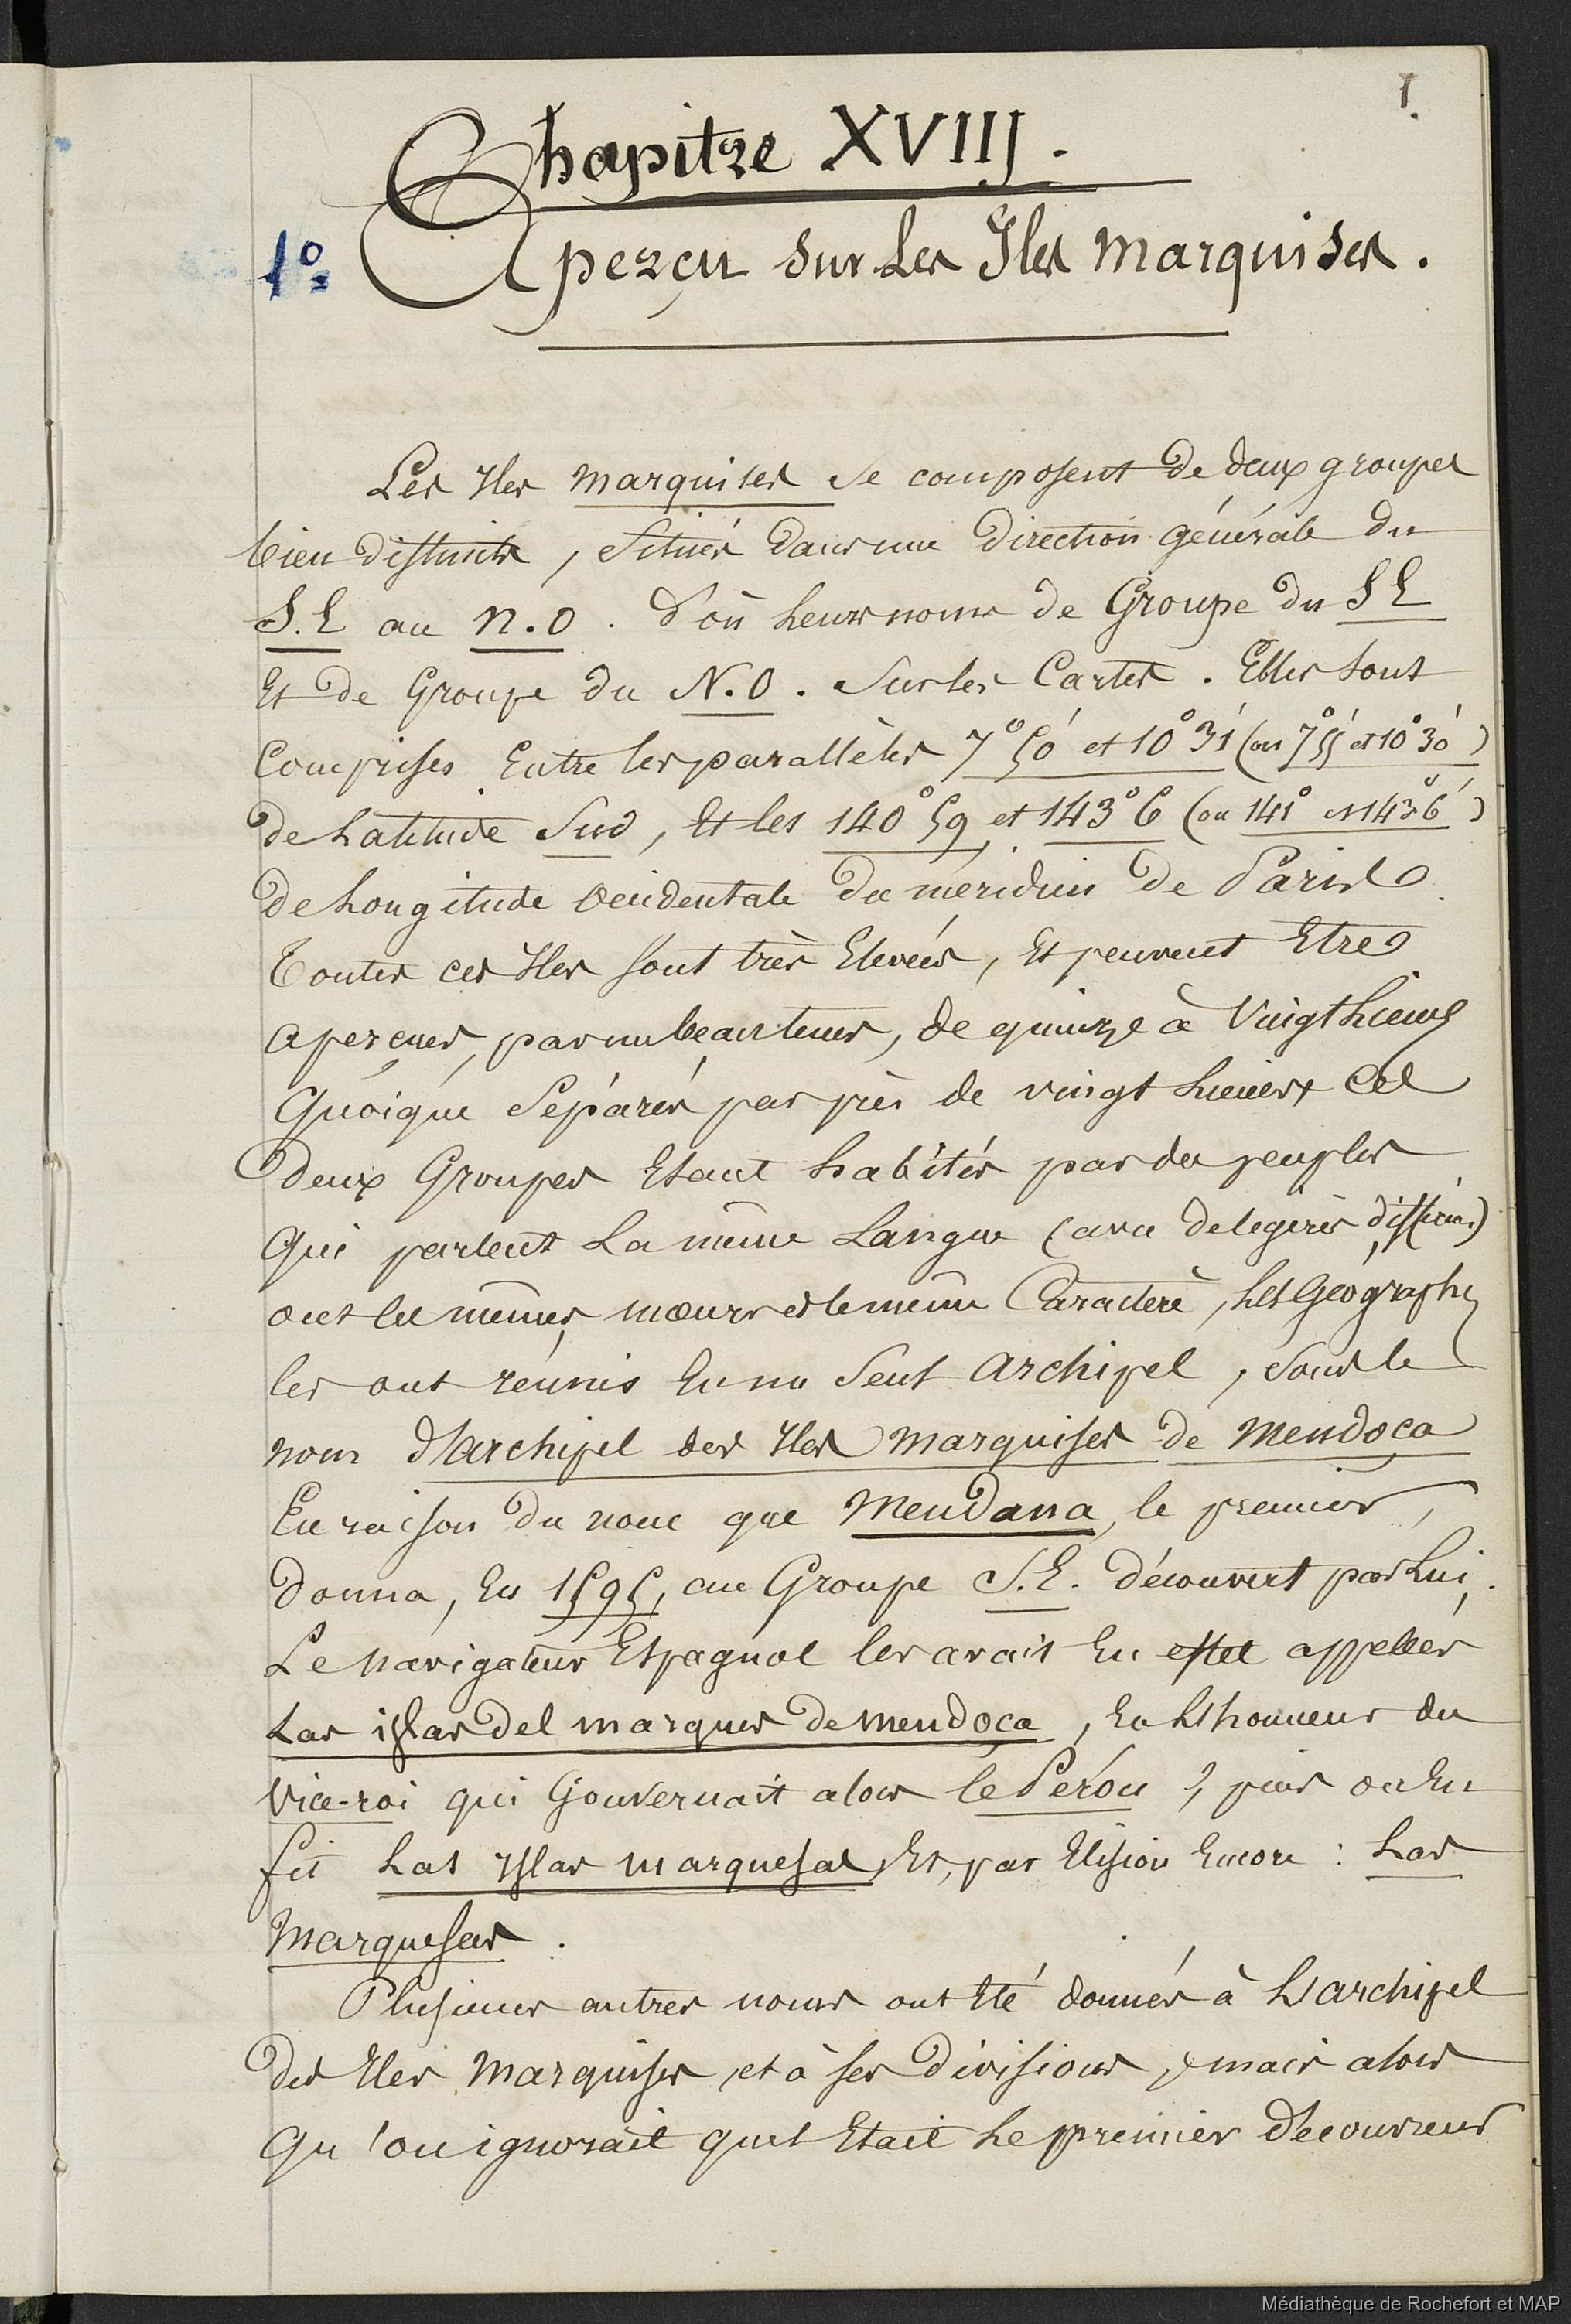 1.
Chapitre XVIII.
1º Aperçu sur Les Iles Marquises.
Les Iles Marquises se composent de deux groupes
bien distincts, Situés dans une Direction générale du
S.E au N.O. D'où Leurs noms de Groupe du S E
Et de Groupe du N.O. Sur les Cartes. Elles sont
Comprises Entre les parallèles 7° 50' et 10° 31' (ou 7° 55' et 10° 30')
de Latitude Sud, Et les 140° 59 et 143° 6 (ou 141° et 143° 6')
de Longitude Occidentale du méridien de Paris
Toutes ces Iles sont très Elevées, Et peuvent Etre
aperçues, par un beau tems, de quinze à Vingt Lieues
Quoique Séparés par près de vingt Lieues, Ces
Deux Groupes Etant habités par des peuples
Qui parlent La même Langue (avec de legères différ.)
ont les mêmes mœurs et le même Caractère, Les Géographes
les ont réunis En un Seul archipel, sous le
nom d'archipel des Iles Marquises de Mendoça
En raison du nom que Mendana, le premier,
donna, En 1595, au Groupe S.E. découvert par Lui.
Le Navigateur Espagnol les avait En effet appelées
Las islas del marques de mendoça, En L'honneur du
Vice-roi qui Gouvernait alors le Pérou, puis on En
fit Las Yslas marquesas, Et, par Elision Encore : Las
Marquesas.
Plusieurs autres noms ont Eté donnés à L'archipel
des Iles Marquises, et à ses divisions, mais alors
Qu'on ignorait quel Etait Le premier découvreur
Médiathèque de Rochefort et MAP